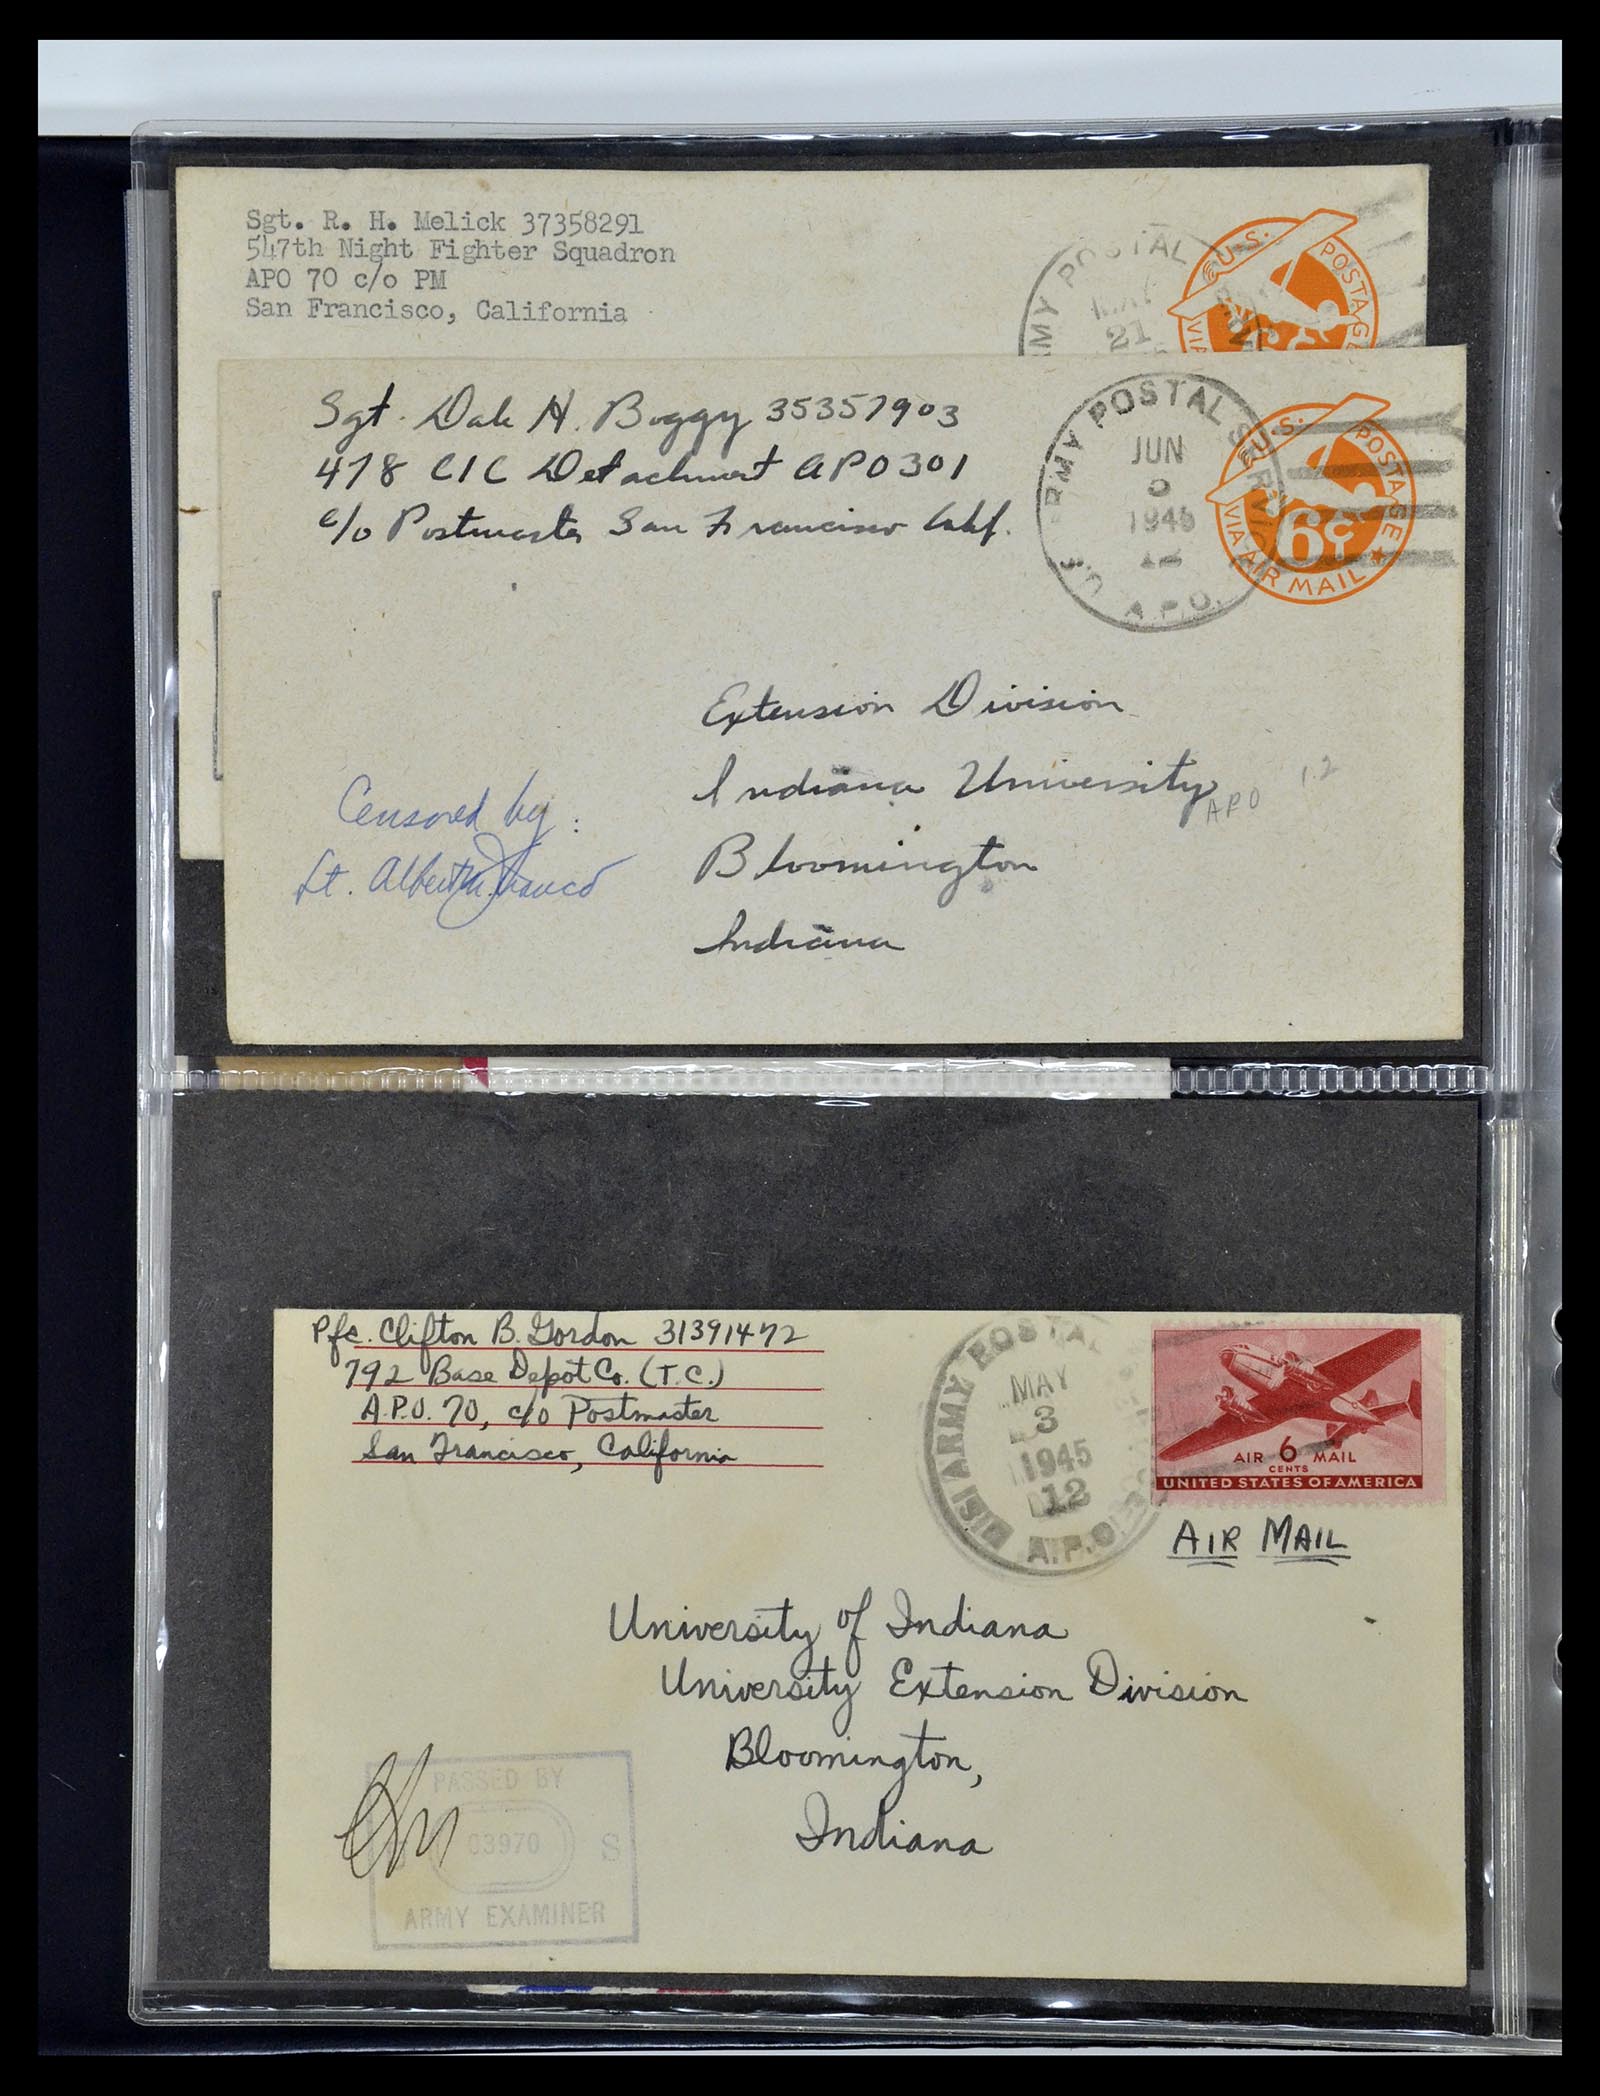 Sgt. R. H. Melick 37358291
547th Night Fighter Squadron
APO 70 c/o PM
San Francisco, California
ARMY POSTAL
21
U.S. POSTAGE
VIA
Sgt. Dale H. Boggy 35357903
478 CIC Detachment APO 301
c/o Postmaster San Francisco Calif.
ARMY POSTAL SERVICE
JUN
1945
A.P.O.
U.S. POSTAGE
6¢
VIA AIR MAIL
Extension Division
Indiana University
APO 1.2
Bloomington
Indiana
Censored by:
Lt. Albert
Pfc. Clifton B. Gordon 31391472
792 Base Depot Co. (T.C.)
A.P.O. 70, c/o Postmaster
San Francisco, California
ARMY POSTAL
MAY
3
1945
12
A.P.O.
AIR 6 MAIL
CENTS
UNITED STATES OF AMERICA
AIR MAIL
University of Indiana
University Extension Division
Bloomington,
Indiana
PASSED BY
03970 S
ARMY EXAMINER